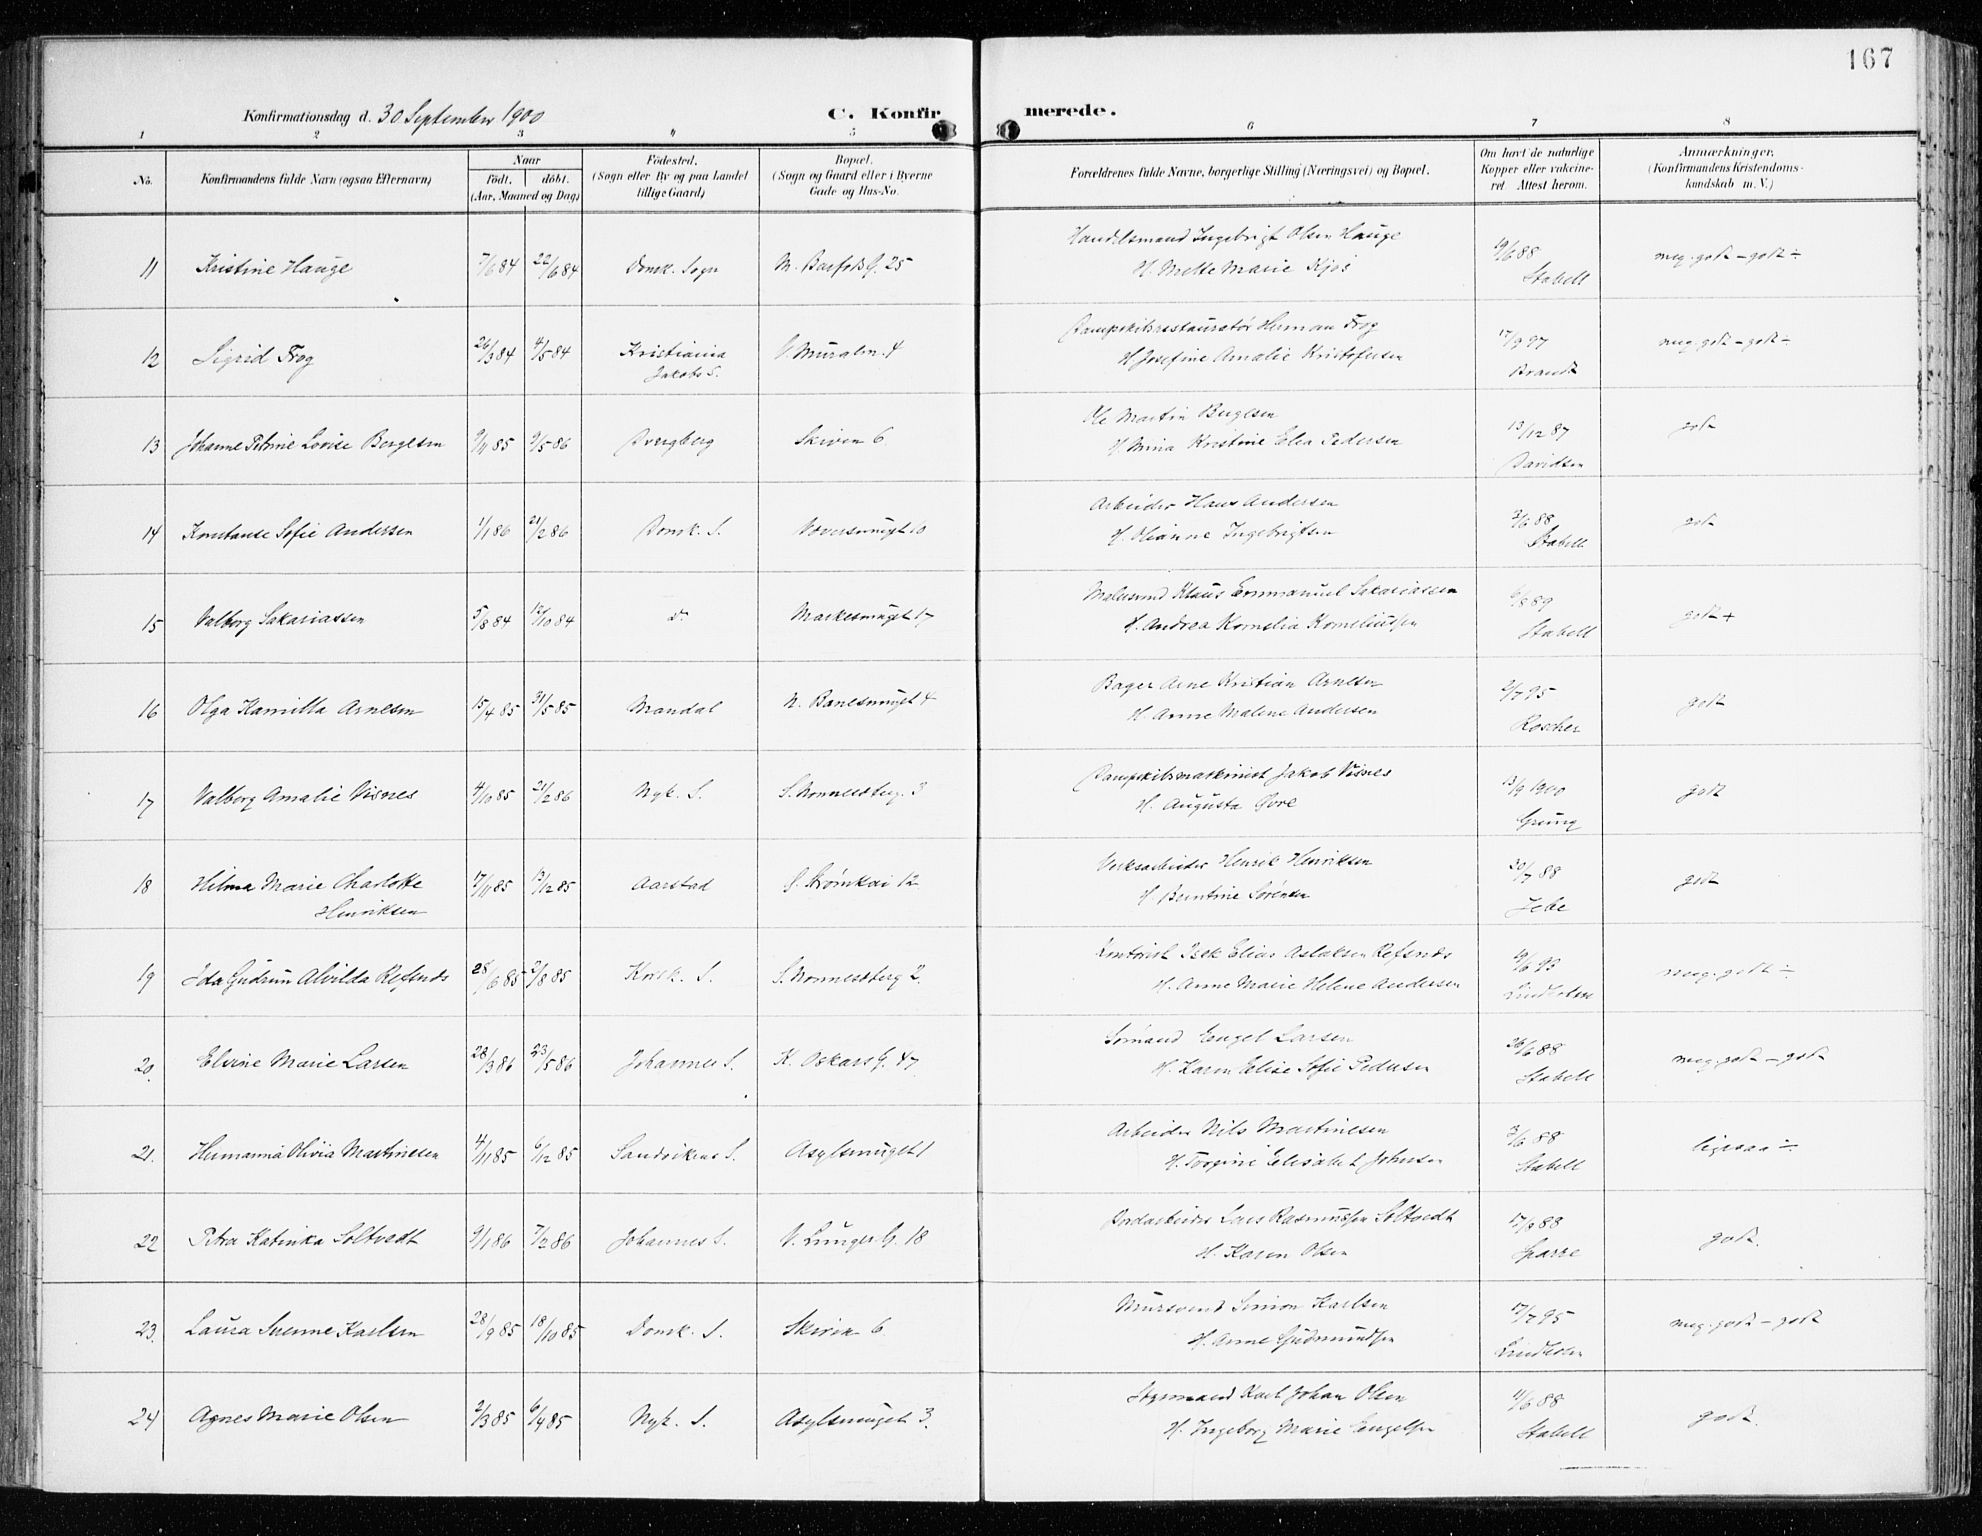 167
Konfirmationsdag d. 30 September 1900 C. Konfirmerede.
1 2 3 4 5 6 7 8
No. Konfirmandens fulde Navn (ogsaa Efternavn) Naar Födt, döbt. (Aar, Maaned og Dag) Födested, (Sogn eller By og paa Landet tillige Gaard) Bopæl. (Sogn og Gaard eller i Byerne Gade og Hus-No. Forældrenes fulde Navne, borgerlige Stilling (Næringsvei) og Bopæl. Om havt de naturlige Kopper eller vakcineret. Attest herom. Anmærkninger, (Konfirmandens Kristendomskundskab m. V.)
11 Kristine Hauge 7/6 84 22/6 84 Domk. Sogn 25 Handelsmand Ingebrigt Olsen Hauge 9/6 88 meg. godt - godt ÷
H. Mette Marie Kjos Stabell
12 Sigrid Frog 26/3 84 4/5 84 Kristiania V. Muralm. 4 Dampskibsrestauratör Herman Frog 17/9 97 meg. godt - godt ÷
Jakobs S. H. Josefine Amalie Kristofersen Brandt
13 Johanne Petrine Lovise Borgesen 9/11 85 9/5 86 Dvergberg Skiven 6 Ole Martin 13/12 87 godt
H. Mina Kristine Elea Pedersen Davidsen
14 Konstanse Sofie Andersen 1/1 86 21/2 86 Domk. S. Væversmuget 10 Arbeider Hans Andersen 3/6 88 godt
H. Olianne Ingebrigtsen Stabell
15 Valborg Sakariassen 5/8 84 12/10 84 do Markesmuget 17 Malersvend Klaus Emmanuel Sakariassen 6/8 89 godt +
H. Andrea Kornelia Korneliussen Stabell
16 Olga Kamilla Arnesen 15/4 85 31/5 85 Mandal N. Banesmuget 4 Bager Arne Kristian Arnesen 2/7 95 godt
H. Anne Malene Andersen Roscher
17 Valborg Amalie Visnes 4/10 85 21/2 86 Nyk. S. S. Nonnesbterg. 3 Dampskibsmaskinist Jakob Visnes 13/9 1900 godt
H. Augusta Övre Grung
18 Hilma Marie Charlotte 17/11 85 13/12 85 Aarstad S. Strömkai 12 Verksarbeider Henrik Henriksen 20/7 88 godt
Henriksen H. Berntine Sörensen Jebe
19 Ida Gudrun Alvilda Refsnds 28/6 85 2/8 85 Korsk. S. S. Nonnestberg 2 Kontorist Isek Elias Aslaksen Refsnds 9/6 93 meg. godt ÷
H. Anne Marie Helene Andersen
20. Elvine Marie Larsen 28/3 86 23/5 86 Johannes S. K. Oskars G. 47 Sömand Engel Larsen 26/6 88 meg. godt - godt
H. Karen Elise Sofie Pedersen Stabell
21. Hermanna Olivia Martinesen 4/11 85 6/12 85 Sandvikens S. Asylsmuget 1 Arbeider Nils Martinesen 3/6 88 ligesaa ÷
H. Torgine Elisabet Johnsen Stabell
22 Petra Katinka Soltvedt 9/1 86 7/2 86 Johannes S. V. Lunger G. 18 Jordarbeider Lars Rasmussen Soltvedt 17/9 88 godt.
H. Karen Olsen Sparre
23. Laura Karlsen 28/9 85 18/10 85 Domk. S. Skiven 6 Mursvend Simon Karlsen 17/7 95 meg. godt - godt
H. Anne Gudmundsen
24 Agnes Marie Olsen 2/3 85 6/4 85 Nyk. S. Asylsmuget 3. Styrmand Karl Johan Olsen 11/6 88 godt.
H. Ingeborg Marie Engelsen Stabell